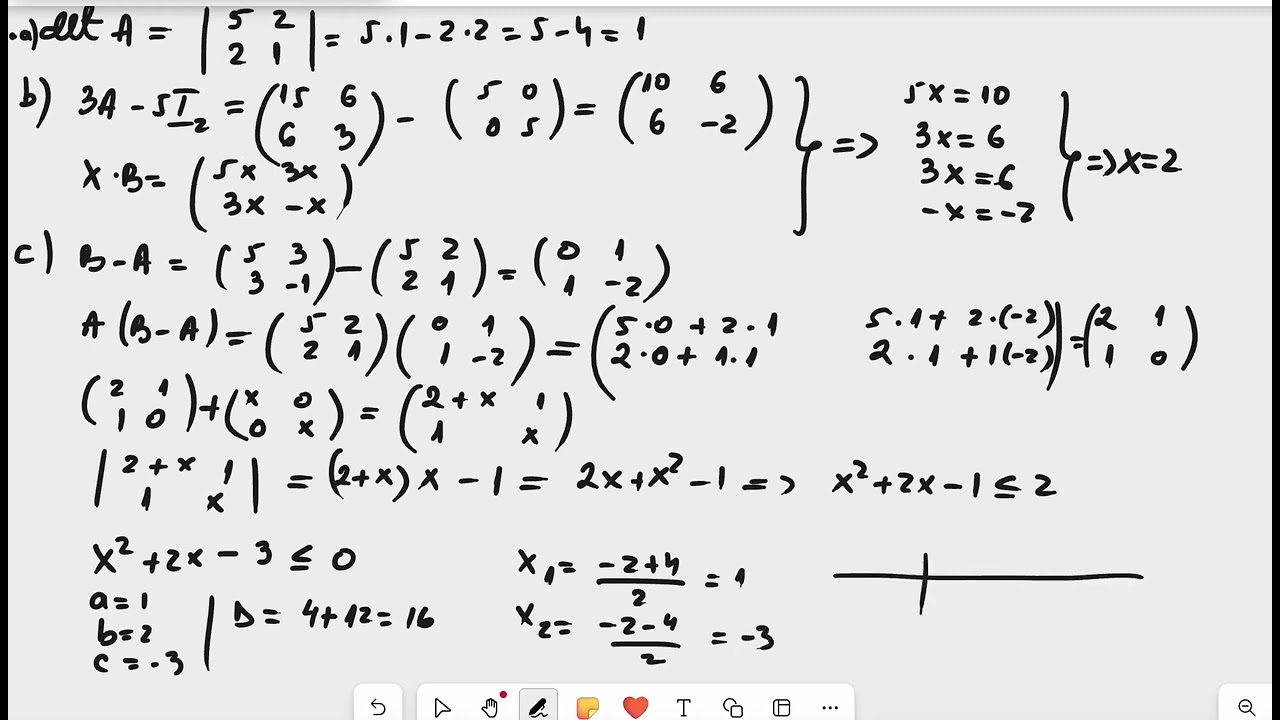 .a) det A = | 5 2 ; 2 1 | = 5·1 - 2·2 = 5 - 4 = 1
b) 3A - 5I₂ = ( 15 6 ; 6 3 ) - ( 5 0 ; 0 5 ) = ( 10 6 ; 6 -2 )
X·B = ( 5x 3x ; 3x -x )
} => 5x = 10
3x = 6
3x = 6
-x = -2
} => x = 2
c) B - A = ( 5 3 ; 3 -1 ) - ( 5 2 ; 2 1 ) = ( 0 1 ; 1 -2 )
A (B - A) = ( 5 2 ; 2 1 ) ( 0 1 ; 1 -2 ) = ( 5·0 + 2·1 5·1 + 2·(-2) ; 2·0 + 1·1 2·1 + 1(-2) ) = ( 2 1 ; 1 0 )
( 2 1 ; 1 0 ) + ( x 0 ; 0 x ) = ( 2 + x 1 ; 1 x )
| 2 + x 1 ; 1 x | = (2+x) x - 1 = 2x + x² - 1 => x² + 2x - 1 ≤ 2
x² + 2x - 3 ≤ 0
a = 1
b = 2
c = -3
| D = 4 + 12 = 16
x₁ = (-2+4)/2 = 1
x₂ = (-2-4)/2 = -3
T